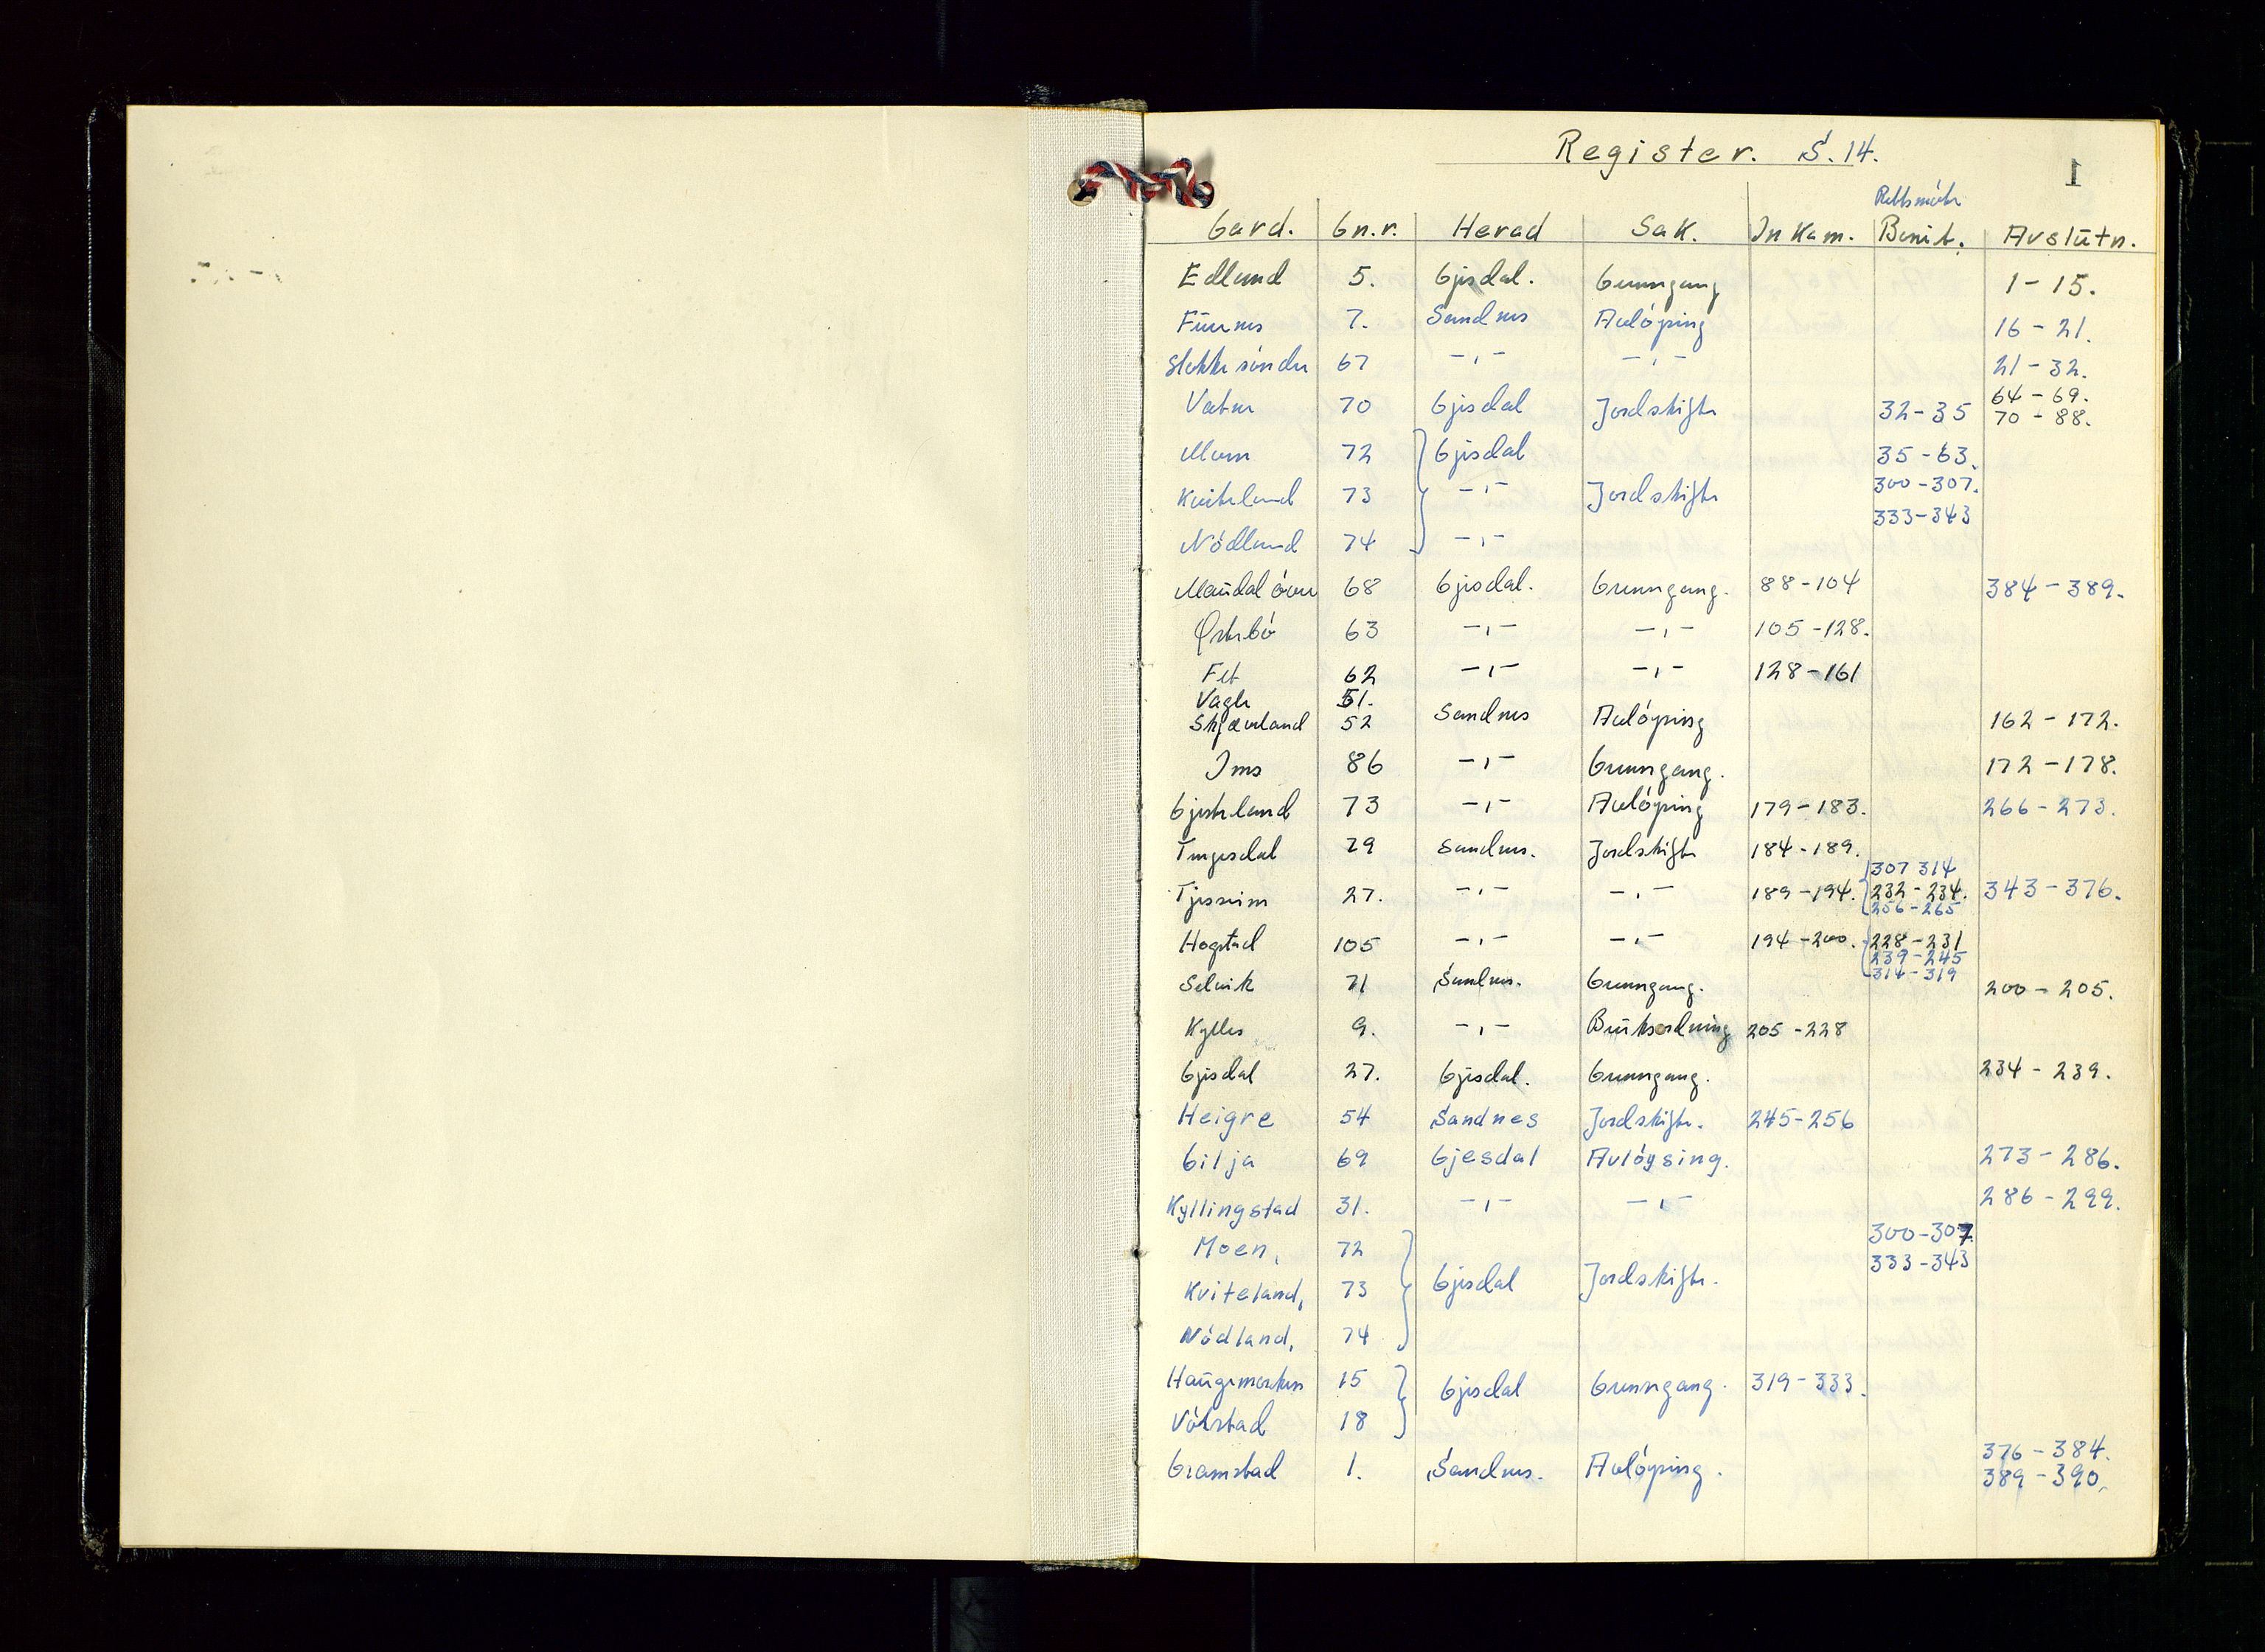 Register. S. 14.
1
Rettsmøte
Gard. Gn.r. Herad Sak. Inkam. Bonit. Avslutn.
Edland 5. Gjesdal. Grenngang 1-15.
Furenes 7. Sandnes Avløysing 16-21.
67 -,- -,- 21-32.
Vatne 70 Gjesdal Jordskifte 32-35 64-69.
70-88.
Moen 72 Gjesdal 35-63.
Kviteland 73 -,- Jordskifte 300-307.
333-343
Nødland 74 -,-
Maudal øvre 68 Gjesdal. Grenngang. 88-104 384-389.
Østebø 63 -,- -,- 105-128.
Fet 62 -,- -,- 128-161
Vagle 51.
Skjæveland 52 Sandnes Avløysing 162-172.
Ims 86 -,- Grenngang. 172-178.
Gjesteland 73 -,- Avløysing 179-183. 266-273.
Tengesdal 79 Sandnes. Jordskifte 184-189.
307 314
Tjessem 27. -,- -,- 189-194. 232-234. 343-376.
256-265
Hogstad 105 -,- -,- 194-200. 228-231
239-245
314-319
Selvik 71 Sandnes. Grenngang. 200-205.
Kylles 9. -,- Bruksordning 205-228
Gjesdal 27. Gjesdal. Grenngang. 234-239.
Heigre 54 Sandnes Jordskifte. 245-256
Gilja 69 Gjesdal Avløysing. 273-286.
Kyllingstad 31. -,- -,- 286-299.
Moen, 72 300-307.
333-343
Kviteland, 73 Gjesdal Jordskifte.
Nødland, 74
Haugemarken 15 Gjesdal Grenngang. 319-333.
Vølstad 18
376-384.
Gramstad 1. Sandnes. Avløysing. 389-390.